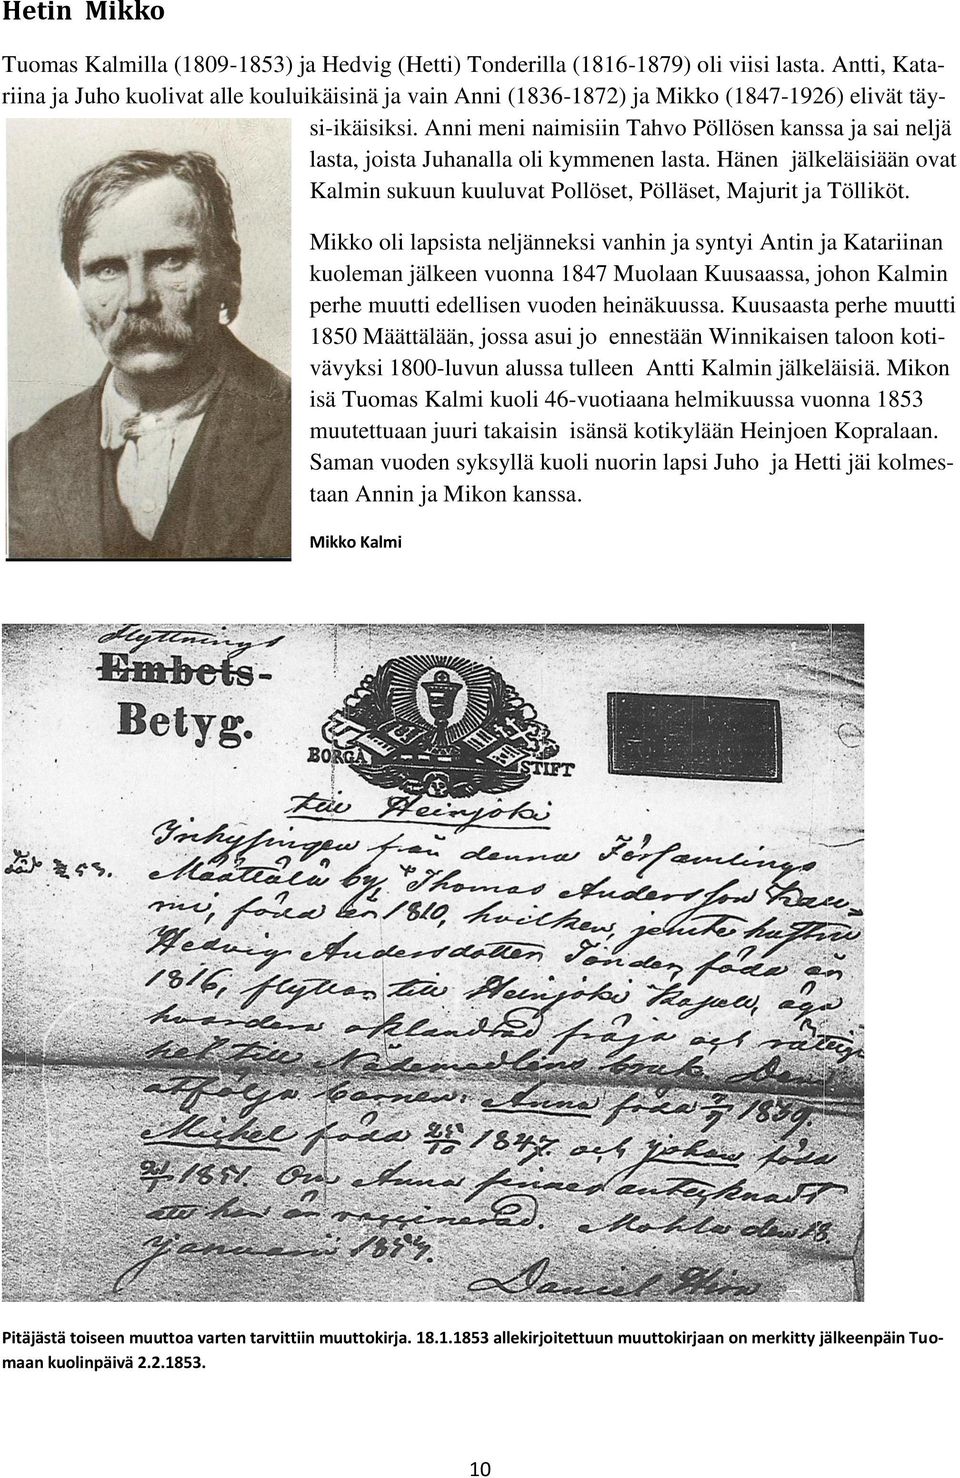 Hetin Mikko
Tuomas Kalmilla (1809-1853) ja Hedvig (Hetti) Tonderilla (1816-1879) oli viisi lasta. Antti, Kata-
riina ja Juho kuolivat alle kouluikäisinä ja vain Anni (1836-1872) ja Mikko (1847-1926) elivät täy-
si-ikäisiksi. Anni meni naimisiin Tahvo Pöllösen kanssa ja sai neljä
lasta, joista Juhanalla oli kymmenen lasta. Hänen jälkeläisiään ovat
Kalmin sukuun kuuluvat Pollöset, Pölläset, Majurit ja Tölliköt.
Mikko oli lapsista neljänneksi vanhin ja syntyi Antin ja Katariinan
kuoleman jälkeen vuonna 1847 Muolaan Kuusaassa, johon Kalmin
perhe muutti edellisen vuoden heinäkuussa. Kuusaasta perhe muutti
1850 Määttälään, jossa asui jo ennestään Winnikaisen taloon koti-
vävyksi 1800-luvun alussa tulleen Antti Kalmin jälkeläisiä. Mikon
isä Tuomas Kalmi kuoli 46-vuotiaana helmikuussa vuonna 1853
muutettuaan juuri takaisin isänsä kotikylään Heinjoen Kopralaan.
Saman vuoden syksyllä kuoli nuorin lapsi Juho ja Hetti jäi kolmes-
taan Annin ja Mikon kanssa.
Mikko Kalmi
Flyttnings
Embets-
Betyg.
BORGÅ STIFT
till Heinjoki
Inhysingen från denna Församlings
Määttälä by, Thomas Andersson Kau-
mi, född år 1810, hvilken, jemte hustru
Hedvig Andersdotter Tonder, född år
1816, flyttar till Heinjoki Kapell, äga
hvardera oklandrad fräjd och rättig
het till Nådemedlens bruk. Dem
åtfölja barnen: Anna född 1839.
Michel född 25/10 1847. och Johan född
1851. Om Anna finnes antecknadt
att hon är vaccinerad. Mohla den 18.
Januari 1853.
Daniel Hirn
Pitäjästä toiseen muuttoa varten tarvittiin muuttokirja. 18.1.1853 allekirjoitettuun muuttokirjaan on merkitty jälkeenpäin Tuo-
maan kuolinpäivä 2.2.1853.
10